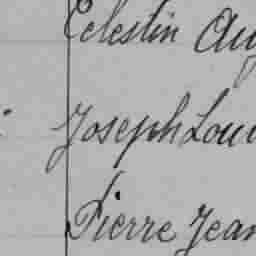 Célestin Aug
Joseph Loui
Pierre Jean